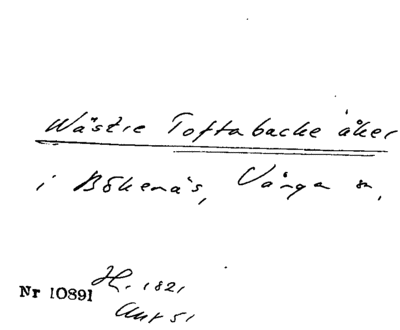 Wästre Toftabacke åker
i Bökenäs, Vånga sn,
H. 1821
Nr 10891
Aur 51